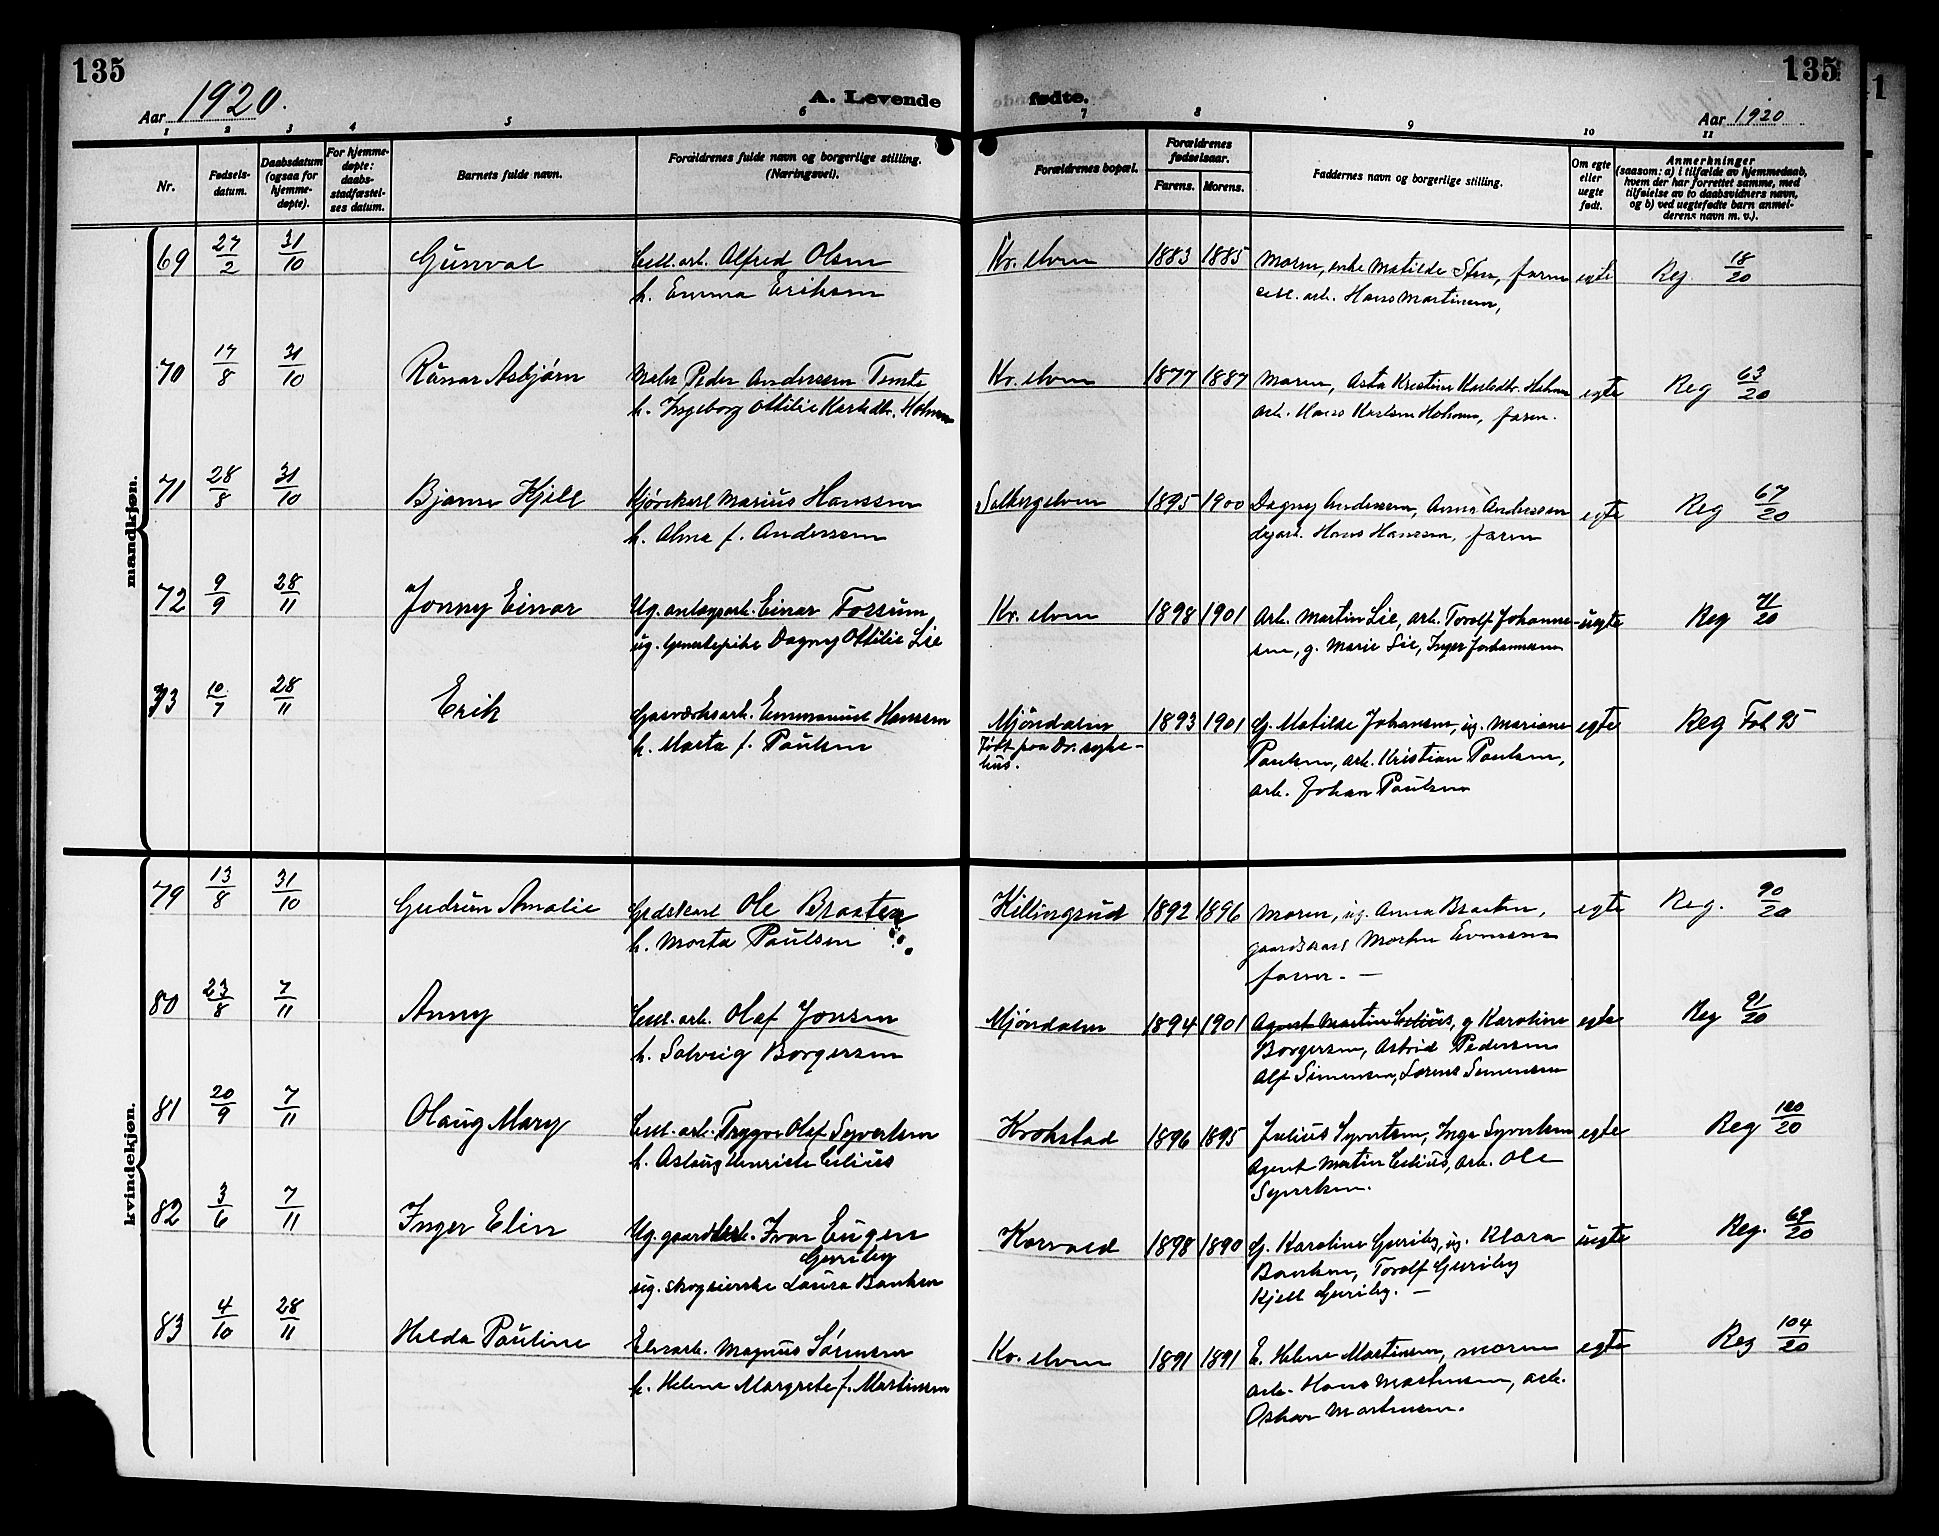 135
Aar 1920.
A. Levende
fødte.
135
Aar 1920
1 2 3 4 5 6 7 8 9 10 11
Nr.
Fødsels-
datum.
Daabsdatum
(ogsaa for
hjemme-
døpte).
For hjemme-
døpte:
daabs-
stadfæstel-
ses datum.
Barnets fulde navn.
Forældrenes fulde navn og borgerlige stilling.
(Næringsvei).
Forældrenes bopæl.
Forældrenes
fødselsaar.
Farens. Morens.
Faddernes navn og borgerlige stilling.
Om egte
eller
uegte
født.
Anmerkninger
(saasom: a) i tilfælde av hjemmedaab,
hvem der har forrettet samme, med
tilføielse av to daabsvidners navn,
og b) ved uegtefødte barn anmel-
derens navn m. v.).
mandkjøn.
69 27/2 31/10 Gunval Cell.arb. Alfred Olsen Kr. elven 1883 1885 Moren, enke Matilde Sten, faren egte Reg. 18/20
h. Emma Eriksen cell. arb. Hans Martinsen,
70 17/8 31/10 Rånar Asbjørn Maler Peder Anderssen Temte Kr. elven 1877 1887 Moren, Asta Kristine Karlsdtr. Holmen egte Reg 63/20
h. Ingeborg Ottilie Karlsdtr. Holmen arb. Hans Karlsen Holmen, faren.
71 28/8 31/10 Bjarne Kjell Kjørekarl Marius Hanssen Solbergelven 1895 1900 Dagny Anderssen, Anna Anderssen egte Reg 67/20
h. Alma f. Anderssen arb. Hans Hanssen, faren
72 9/9 28/11 Jonny Einar Ug. anlægsarb. Einar Fossum Kr. elven 1898 1901 Arb. Martin Lie, arb. Torolf Johanne- uegte Reg 71/20
ug. tjenestepike Dagny Ottilie Lie sen, g. Marie Lie, Inger Johannesen
73 10/7 28/11 Erik Gasverksarb. Emmanuel Hanssen Mjøndalen 1893 1901 G. Matilde Johansen, ug. Mariane egte Reg Fol 95
h. Marta f. Paulsen Født paa Dr. syke-
hus. Paulsen, arb. Kristian Paulsen,
arb. Johan Paulsen
kvindekjøn.
79 13/8 31/10 Gudrun Amalie Grdskarl Ole Braaten Killingrud 1892 1896 Moren, ug. Anna Braaten, egte Reg. 90/20
h. Marta Paulsen gaardskarl Morten Evensen
faren. —
80 23/8 7/11 Anny Cell.arb. Olaf Jonsen Mjøndalen 1894 1901 Agent Martin Celius, g Karoline egte Reg 91/20
h. Solveig Borgersen Borgersen, Astrid Pedersen
Alf Simensen, Lorens Simensen
81 20/9 7/11 Olaug Mary Cell.arb. Trygve Olaf Syvertsen Krokstad 1896 1895 Julius Syvertsen, Inga Syvertsen egte Reg 100/20
h. Aslaug Henriette Celius Agent Martin Celius, arb. Ole
Syvertsen.
82 3/6 7/11 Inger Elin Ug. gaardsarb. Ivar Eugen Korvald 1898 1890 G. Karoline Guriby, ug. Klara uegte Reg. 69/20
Guriby
ug. skogeierske Laura Banksen Banksen, Torolf Guriby
Kjell Guriby. —
83 4/10 28/11 Helda Pauline Elvearb. Magnus Sørensen Kr. elven 1891 1891 E. Helene Martinsen, moren egte Reg 104/20
h. Helene Margrete f. Martinsen arb. Hans Martinsen, arb.
Oskar Martinsen.